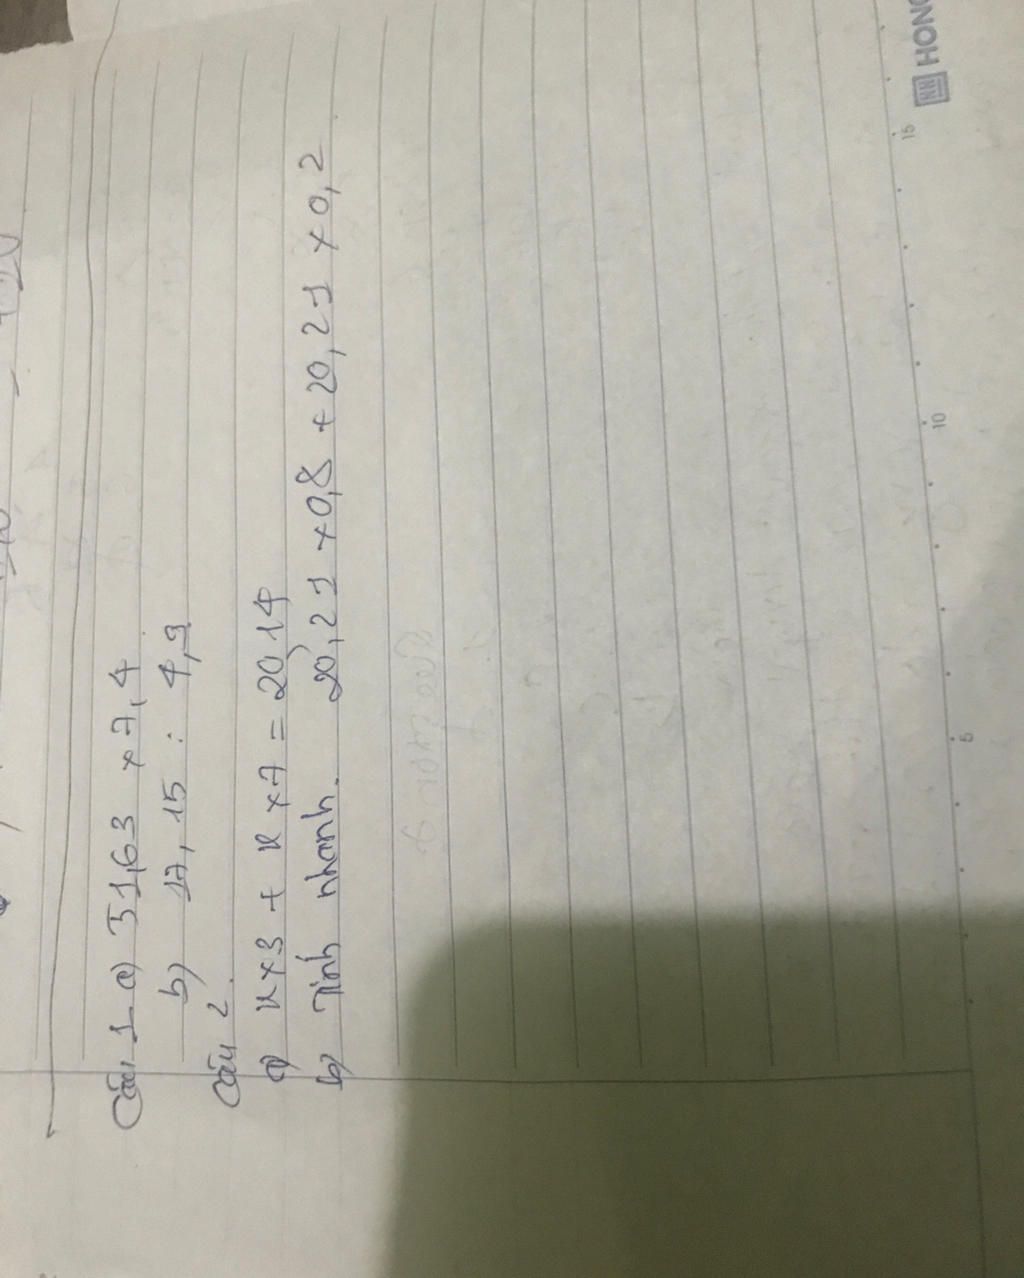 Câu 1 a) 31,63 × 7,4
b) 17,15 : 4,9
Câu 2.
a) x × 3 + x × 7 = 20,14
b) Tính nhanh. 20,21 × 0,8 + 20,21 × 0,2
HONG
5 10 15